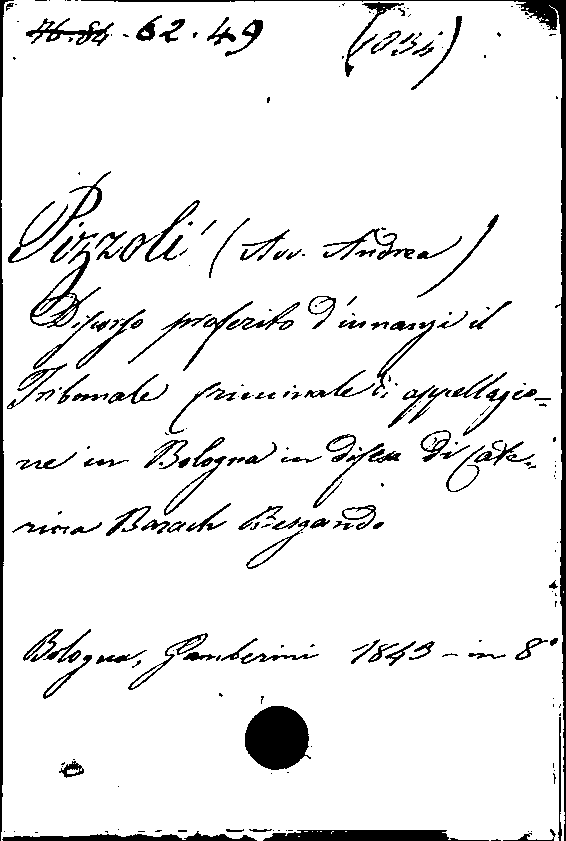 76.84 . 62 . 49 (1034)
Pizzoli (Avv. Andrea)
Discorso proferito d'innanzi il
Tribunale criminale di appellazio-
ne in Bologna in difesa di Cate-
rina Barach Bergando
Bologna, Gamberini 1843 - in 8°